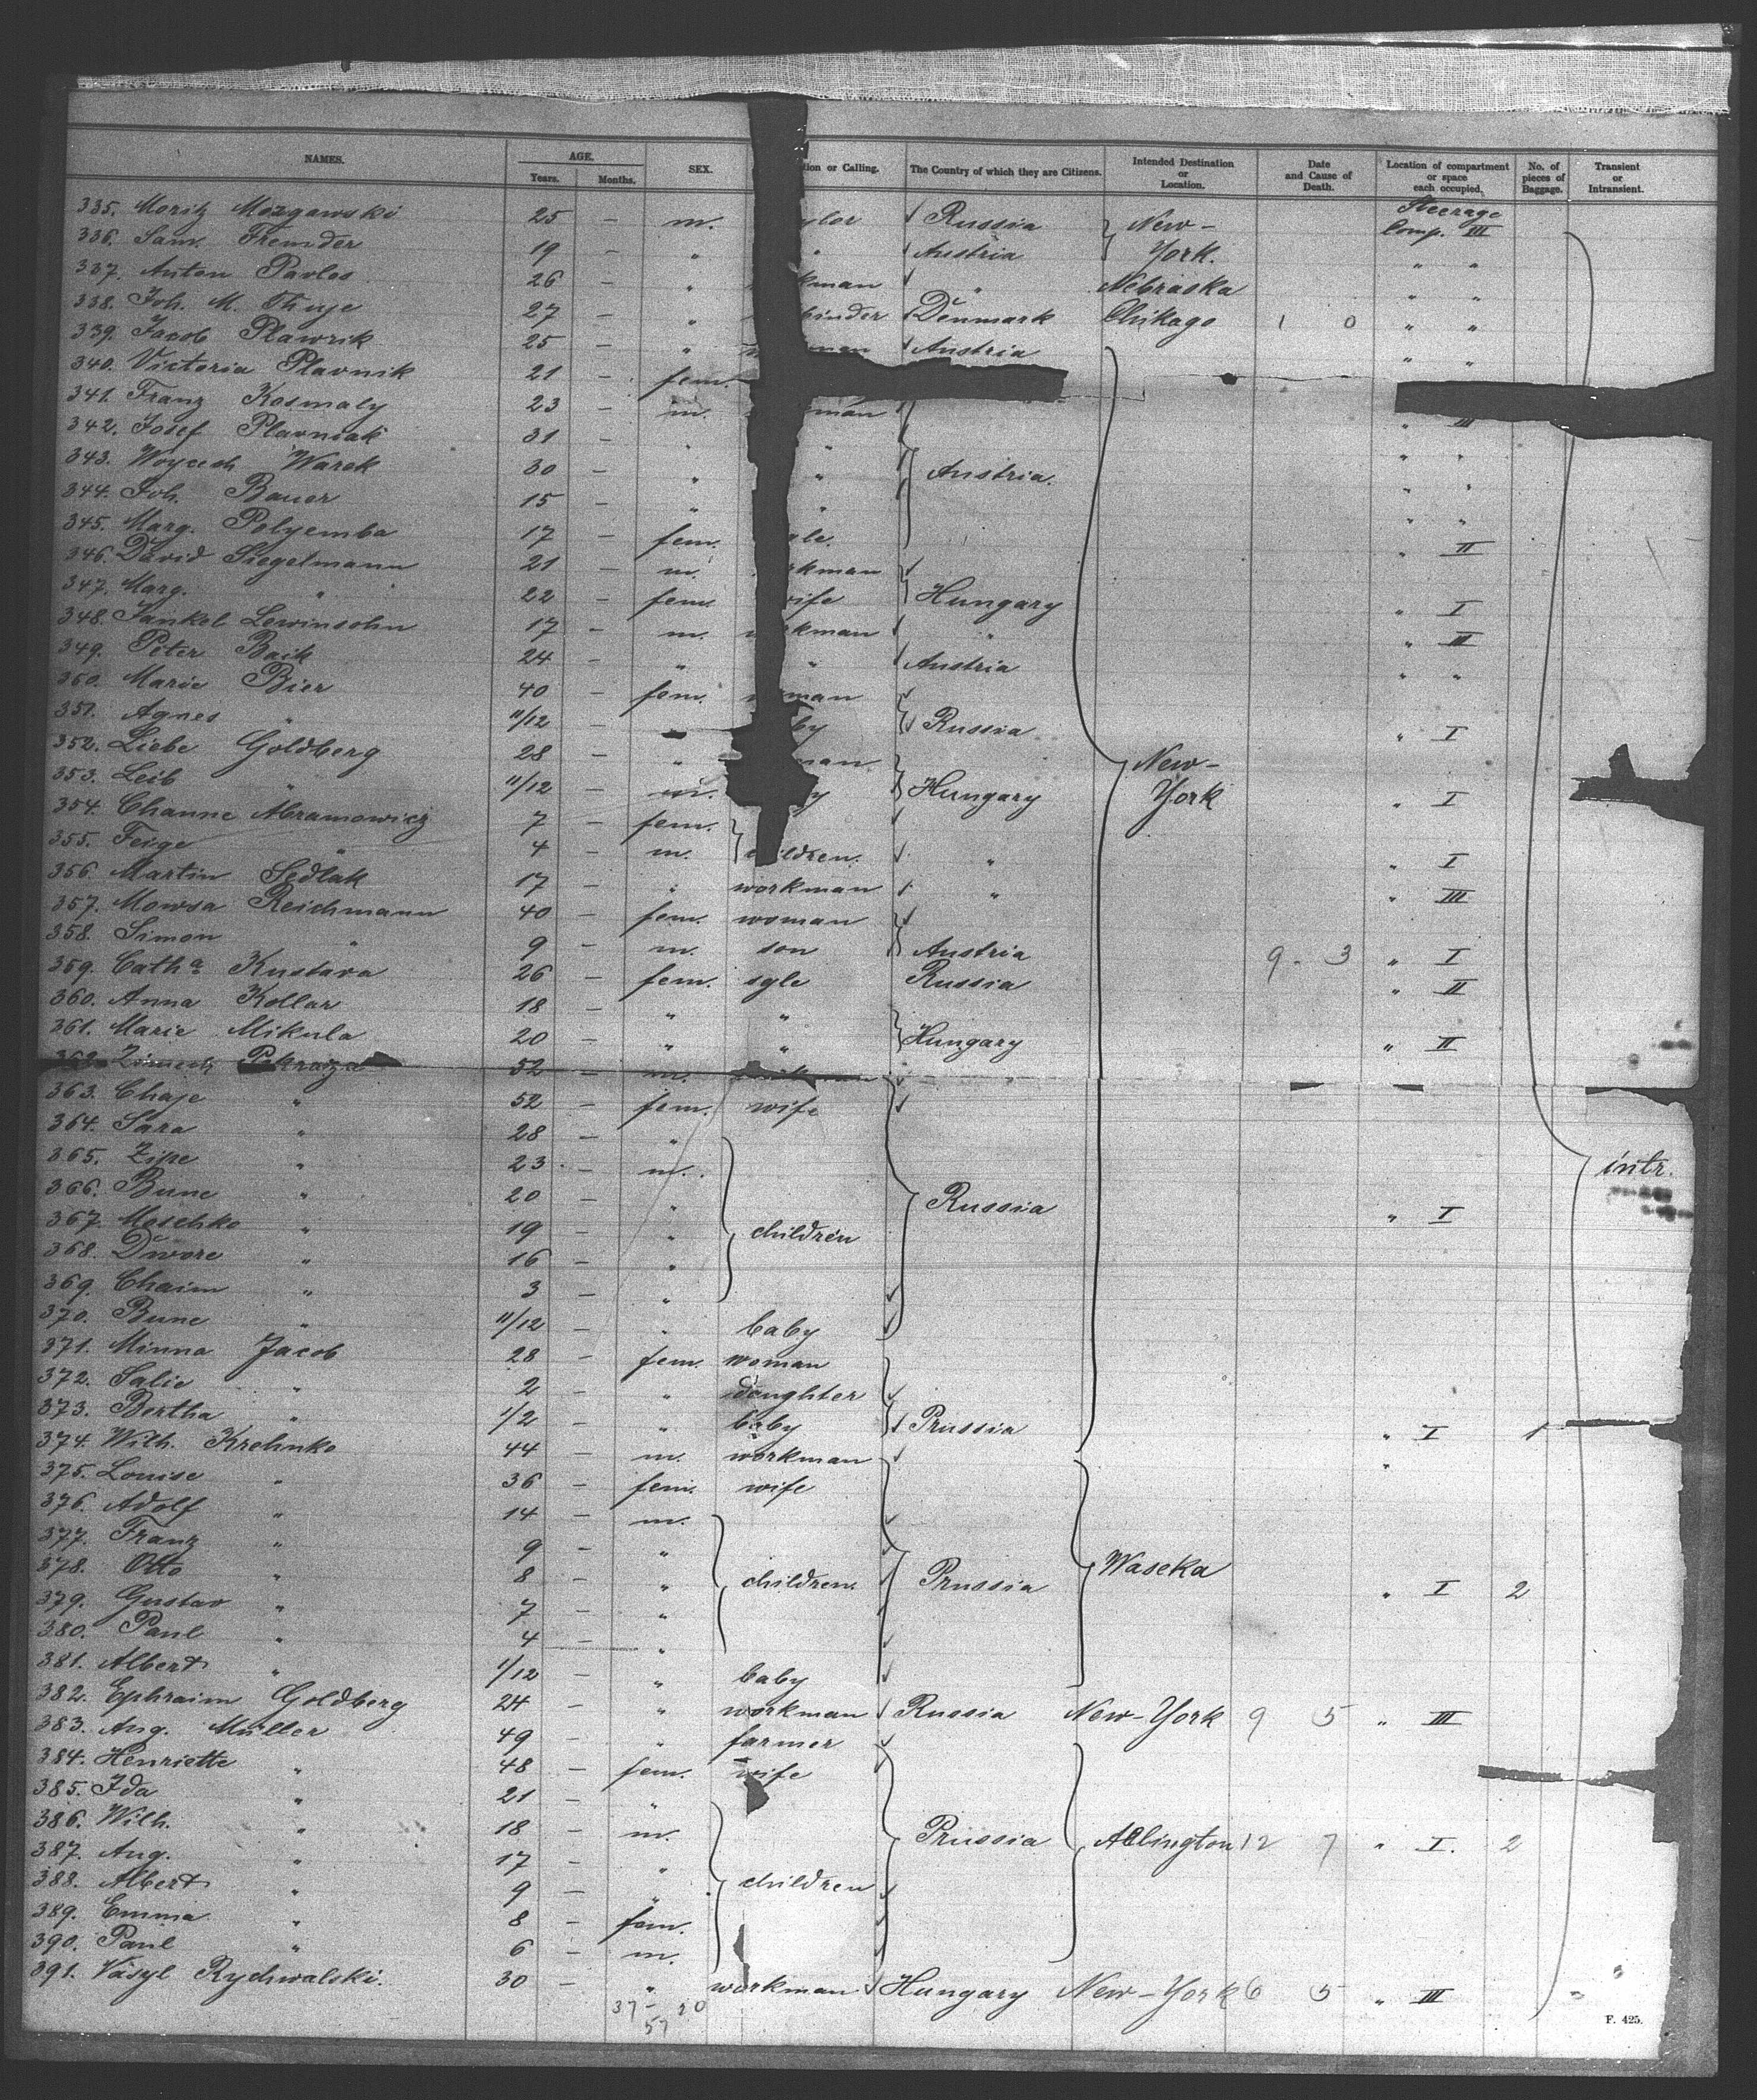 NAMES. AGE. Years. Months. SEX. tion or Calling. The Country of which they are Citizens. Intended Destination or Location. Date and Cause of Death. Location of compartment or space each occupied. No. of pieces of Baggage. Transient or Intransient.
335. Moritz Mozgawski 25 — m. ylor Russia New- Steerage Comp. III
336. Sam. Fremder 19 — " " Austria York. " "
337. Anton Pavlos 26 — " kman " Nebraska " "
338. Joh. M. Thuje 27 — " binder Denmark Chikago 1 0 " "
339. Jacob Plawrik 25 — " man Austria " "
340. Victoria Plavnik 21 — fem.
341. Franz Kosmaly 23 — m. man " III
342. Josef Plavniak 31 — " " " "
343. Woycech Warek 30 — " " Austria. " "
344. Joh. Bauer 15 — " " " "
345. Marg. Polyemba 17 — fem. gle. " II
346. David Siegelmann 21 — m. rkman
347. Marg. " 22 — fem. wife Hungary " I
348. Jankel Lewinsohn 17 — m. workman " " III
349. Peter Baik 24 — " " Austria " "
350. Marie Bier 40 — fem. woman
351. Agnes " 11/12 — by Russia " I
352. Liebe Goldberg 28 — " man New-
353. Leib " 11/12 — m. y Hungary York " I
354. Channe Abramowicz 7 — fem.
355. Feige " 4 — m. children. " " I
356. Martin Sedlak 17 — " workman " " III
357. Mowsa Reichmann 40 — fem. woman
358. Simon " 9 — m. son Austria 9 - 3 " I
359. Catha Kustara 26 — fem. sgle Russia " II
360. Anna Kollar 18 — " "
361. Marie Mikula 20 — " " Hungary " II
362. Pekraza 52 — m. workman
363. Chaje " 52 — fem. wife
364. Sara " 28 — "
365. Zipe " 23 — m. intr.
366. Bune " 20 — " Russia
367. Moschko " 19 — " children " I
368. Dwore " 16 — "
369. Chaim " 3 — "
370. Bune " 11/12 — " baby
371. Minna Jacob 28 — fem. woman
372. Salie " 2 — " daughter
373. Bertha " 1/2 — " baby Prussia " I 1
374. Wilh. Krehnke 44 — m. workman "
375. Louise " 36 — fem. wife
376. Adolf " 14 — m.
377. Franz " 9 — "
378. Otto " 8 — " children. Prussia Waseka " I 2
379. Gustav " 7 — "
380. Paul " 4 — "
381. Albert " 1/12 — " baby
382. Ephraim Goldberg 24 — " workman Russia New-York 9 5 " III
383. Aug. Müller 49 — " farmer
384. Henriette " 48 — fem. wife
385. Ida " 21 — "
386. Wilh. " 18 — m. Prussia Ablington 12 7 " I. 2
387. Aug. " 17 — "
388. Albert " 9 — " children
389. Emma " 8 — fem.
390. Paul " 6 — m.
391. Vasyl Rychwalski. 30 — " workman Hungary New-York 6 5 " III "
37- 20
57
F. 425.